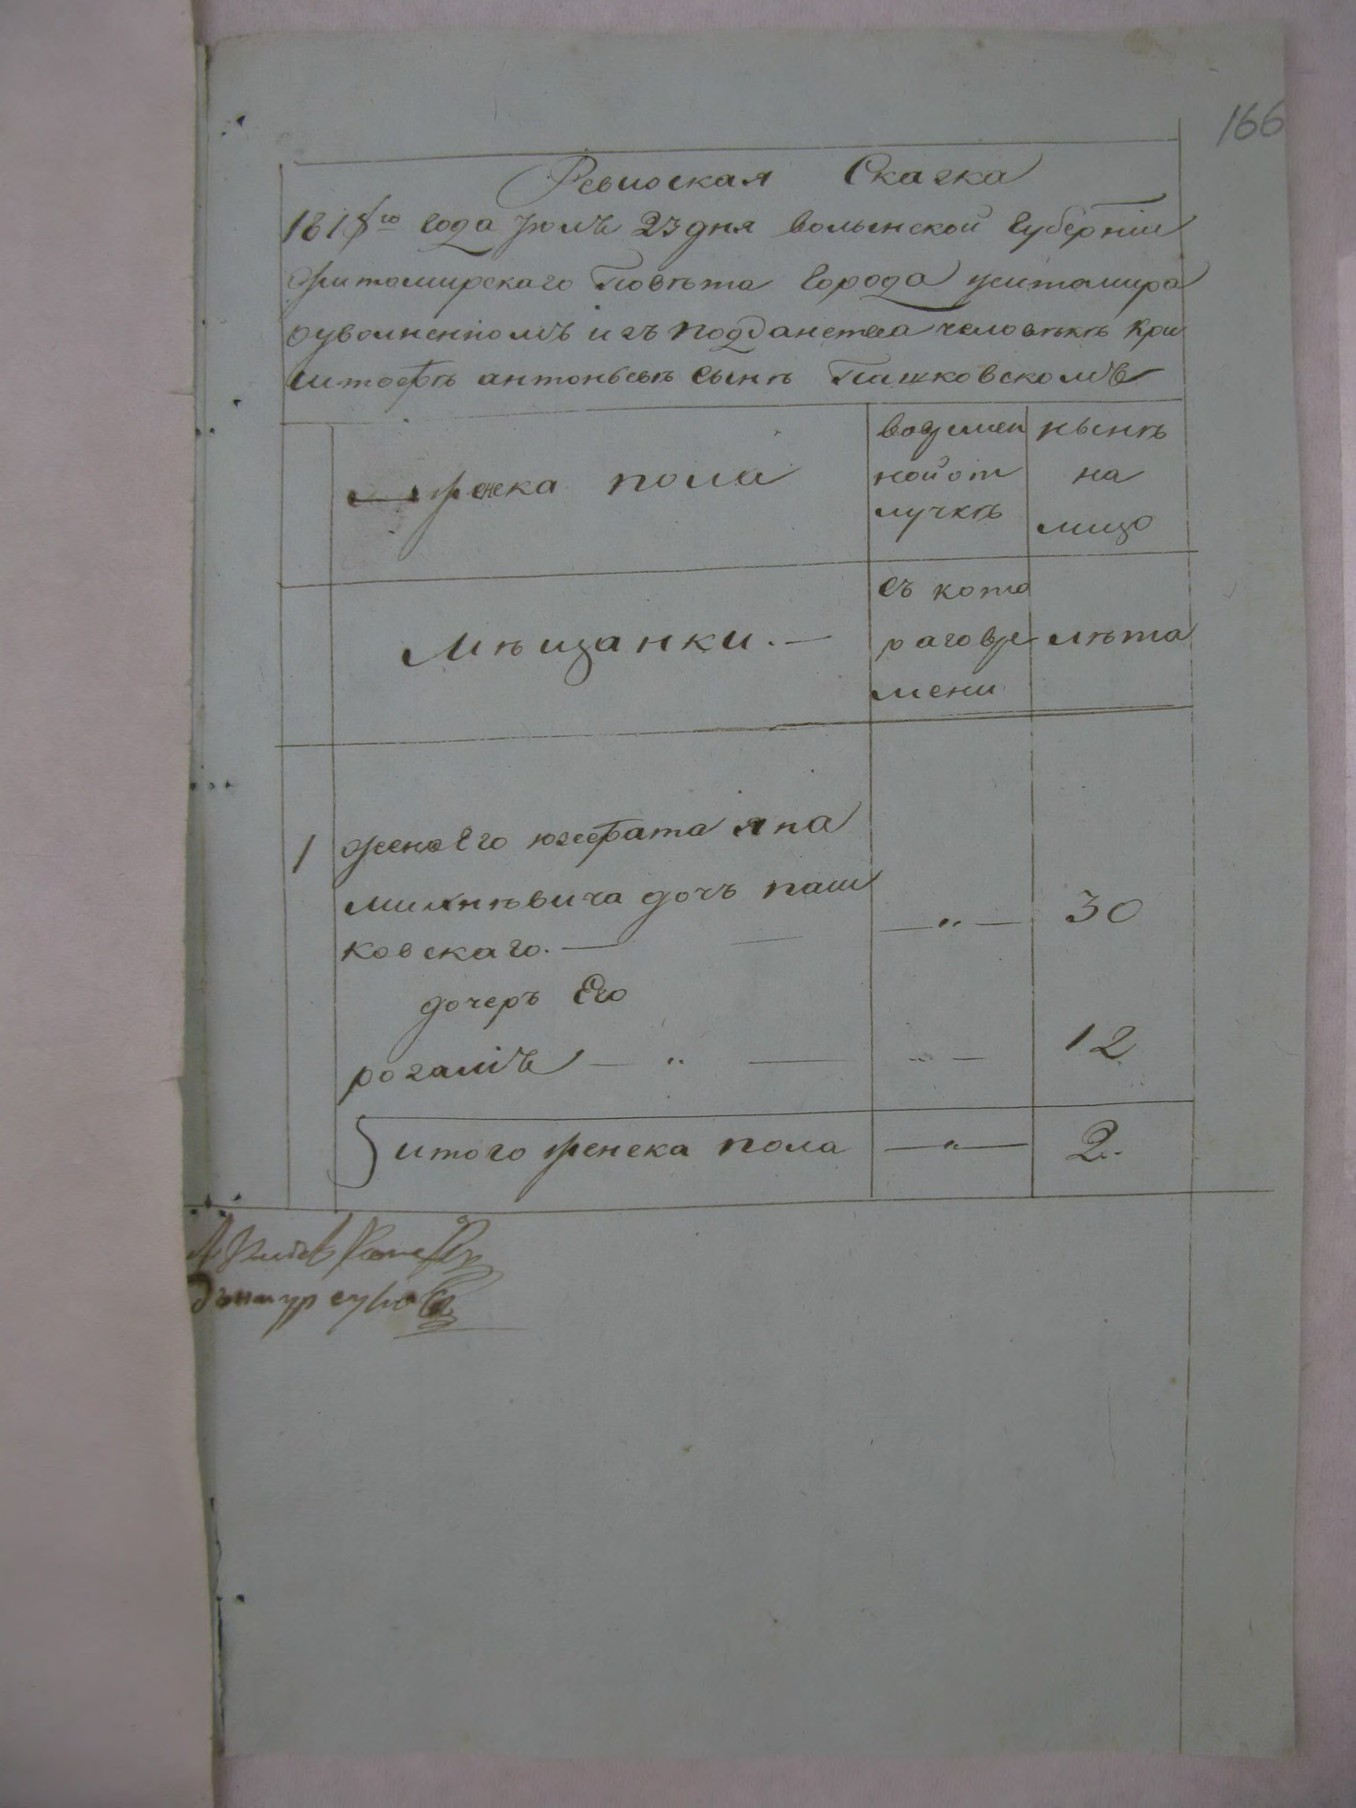 166
Ревизская Сказка
1818го года Июлѣ 23 дня волынской Губерніи
житомирскаго Повѣта Города житомира
оуволненномъ изъ подданства человѣкѣ Кри
штофѣ антонъевѣ сынѣ Пашковскомъ
женска пола
вовремен
ной от
лучкѣ
нынѣ
на
лицо
Мѣщанки. —
съ кото
раговре
мени
лѣта
1 жена Его юзефата яна
милнѣвича дочъ паш
ковскаго. — — — „ — 30
дочеръ Его
розаліѣ — „ — „ — 12
итого женска пола — „ — 2.